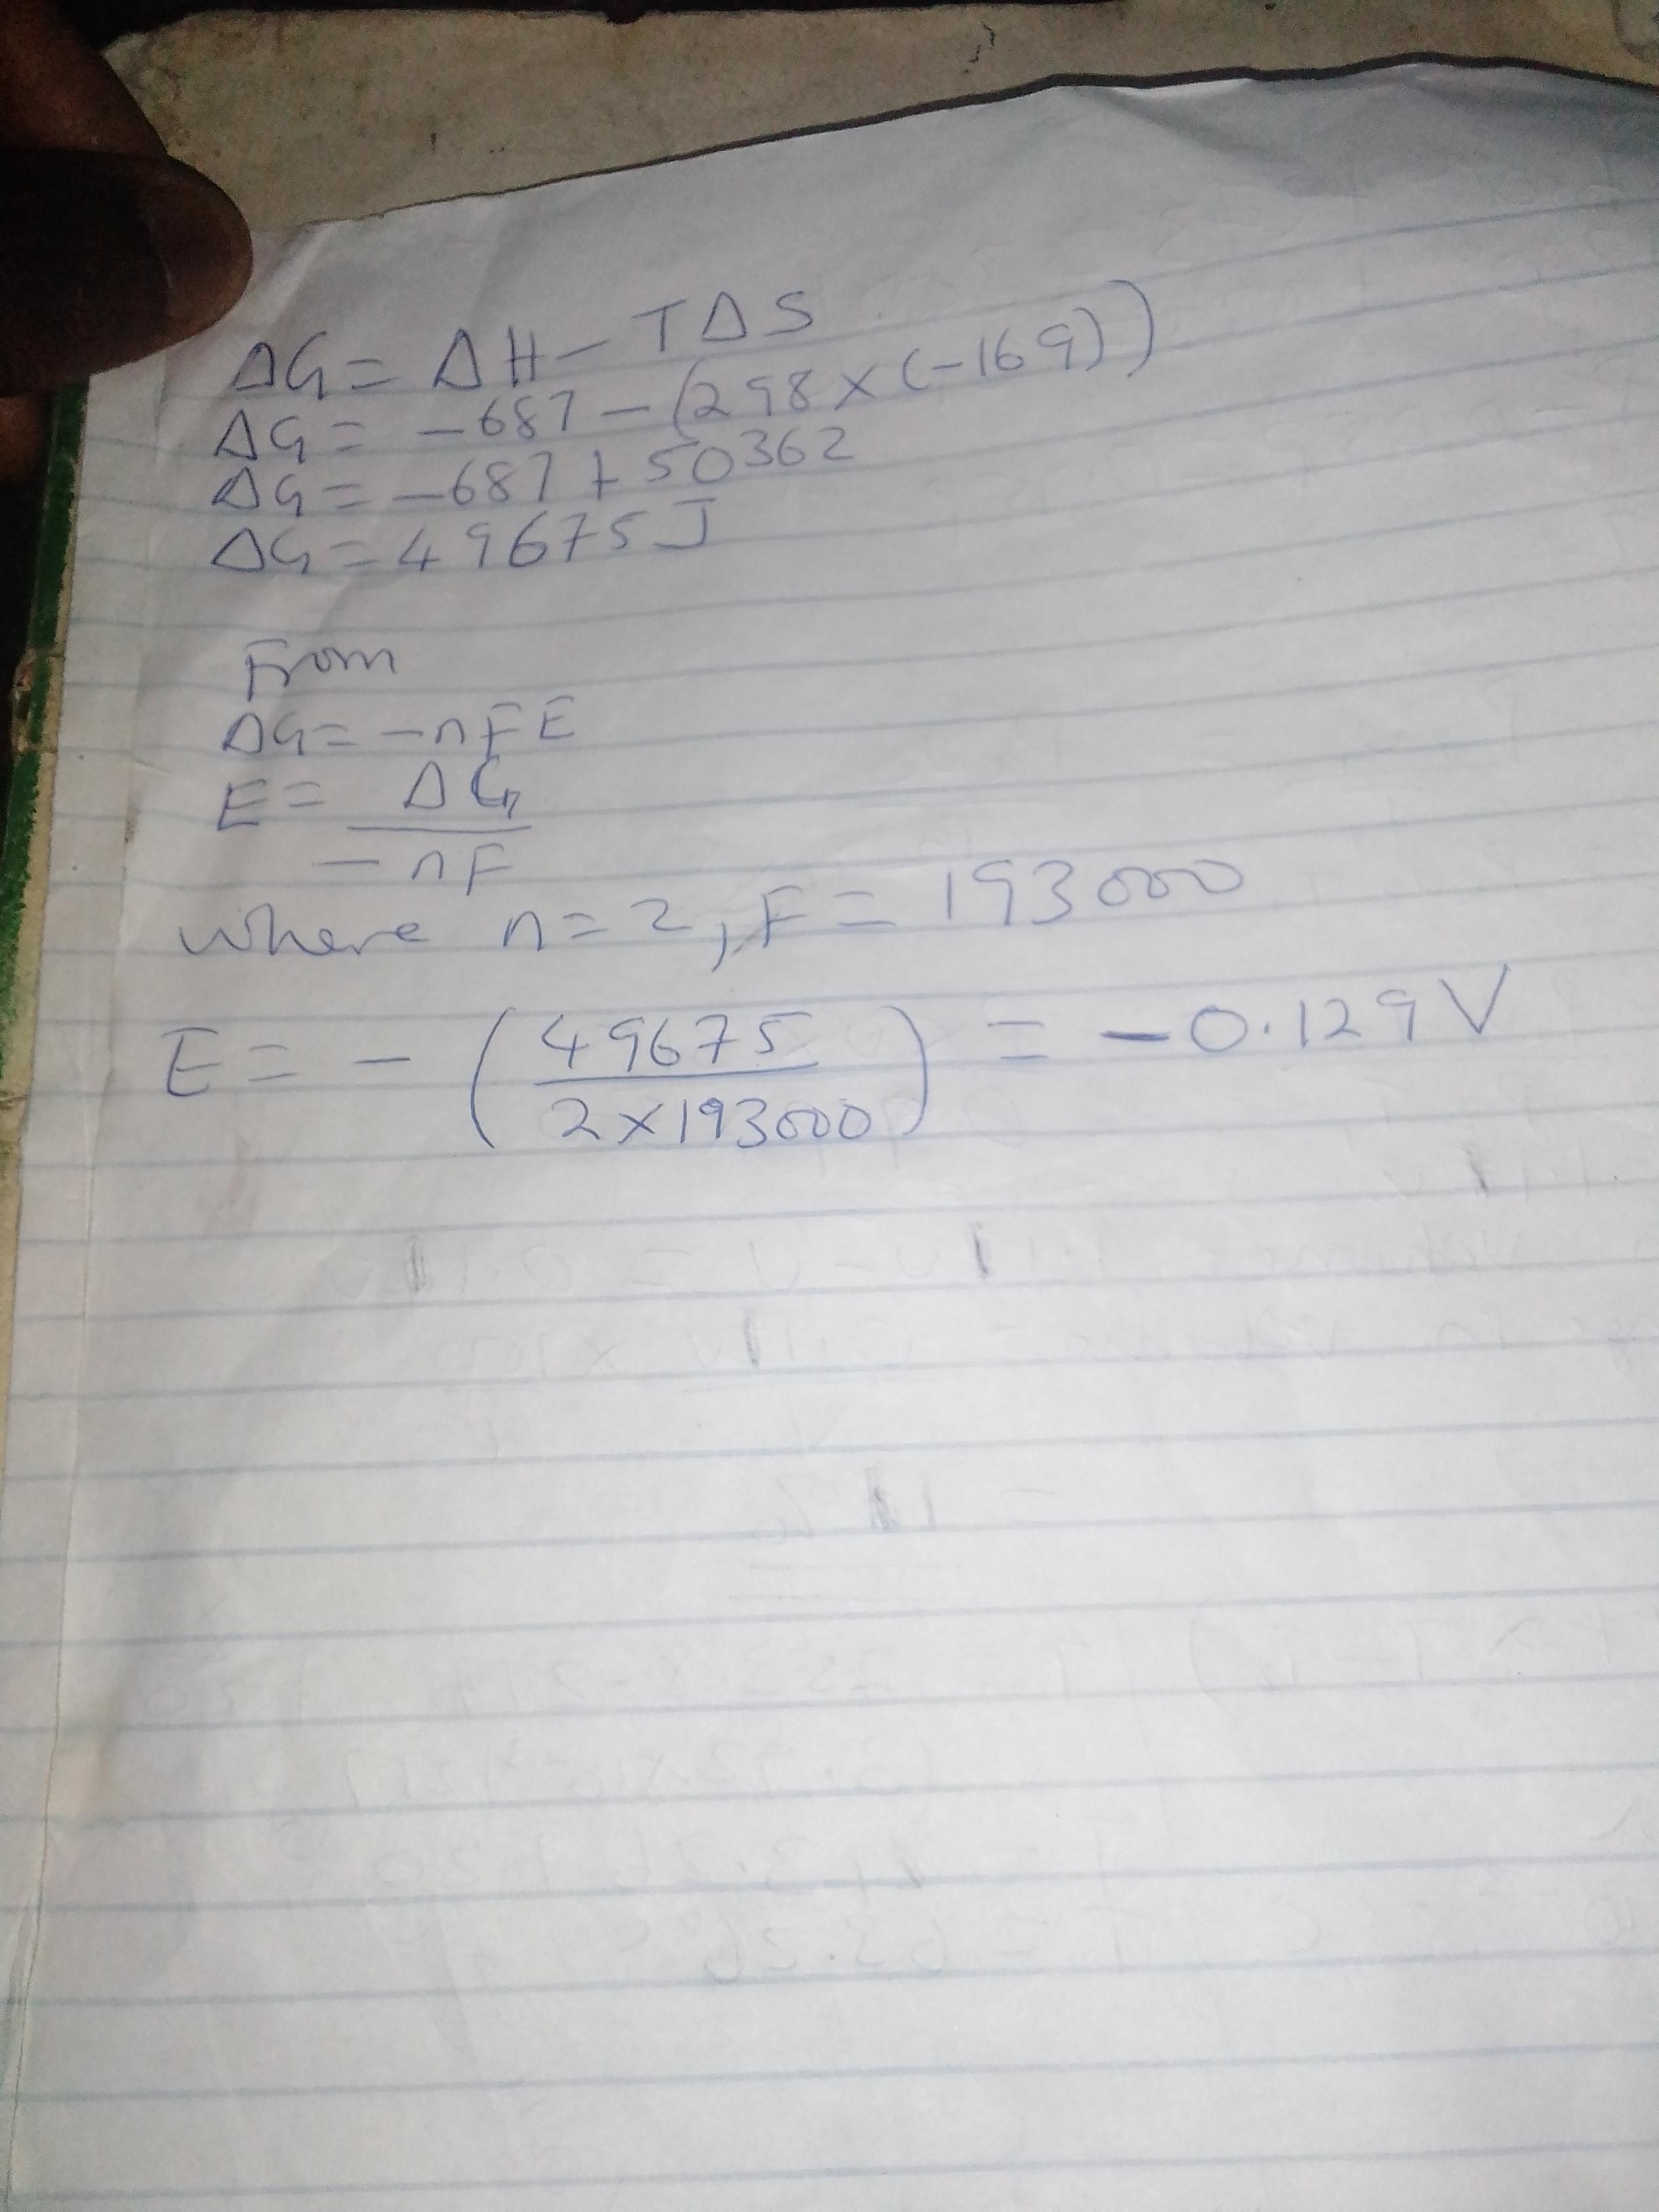 ΔG = ΔH - TΔS
ΔG = -687 - (298 x (-169))
ΔG = -687 + 50362
ΔG = 49675 J
From
ΔG = -nFE
E = ΔG
-nF
where n=2, F = 193000
E = - (49675 / 2x193000) = -0.129V